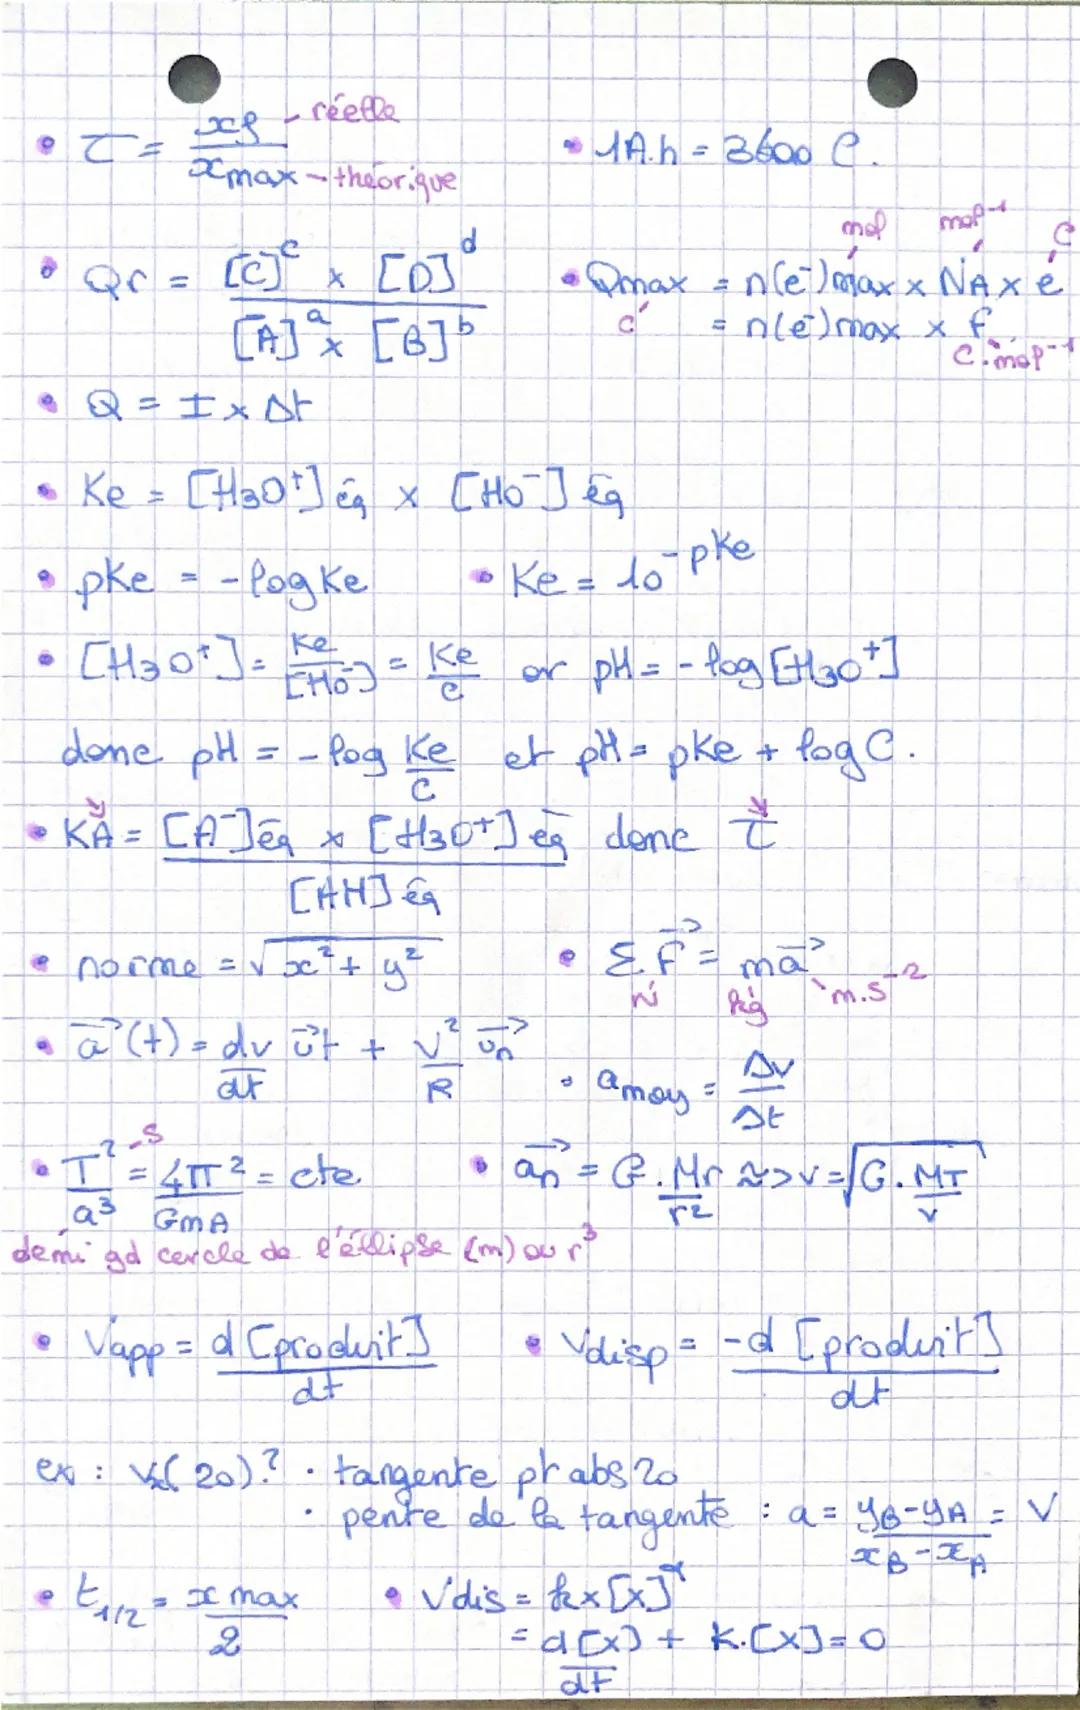 • τ = xf / xmax - réelle - théorique
• 1A.h = 3600 C.
• Qr = [C]^c × [D]^d / [A]^a × [B]^b
• Qmax = n(e⁻)max × NA × e
mol mol⁻¹ C
C = n(e⁻)max × F
C.mol⁻¹
• Q = I × Δt
• Ke = [H3O⁺]éq × [HO⁻]éq
• pKe = -log Ke • Ke = 10^-pKe
• [H3O⁺] = Ke/[HO⁻] = Ke/C or pH = -log [H3O⁺]
donc pH = -log Ke/C et pH = pKe + log C.
• KA ↘ = [A⁻]éq × [H3O⁺]éq / [AH]éq donc τ ↘
• norme = √x² + y²
• Σ F⃗ = m a⃗
N kg m.s⁻²
• a⃗(t) = dv/dt u⃗t + v²/R u⃗n
• amoy = Δv/Δt
• T²/a³ = 4π²/GmA = cte
-s
• a⃗n = G.Mr/r² ~> v = √G.MT/v
demi gd cercle de l'éllipse (m) ou r³
• Vapp = d[produit]/dt • Vdisp = -d[produit]/dt
ex : Vx(20)? · tangente pt abs 20
· pente de la tangente : a = yB-yA / xB-xA = V
• t1/2 = x max / 2 • Vdis = k×[X]^α
= d[X]/dt + K.[X] = 0